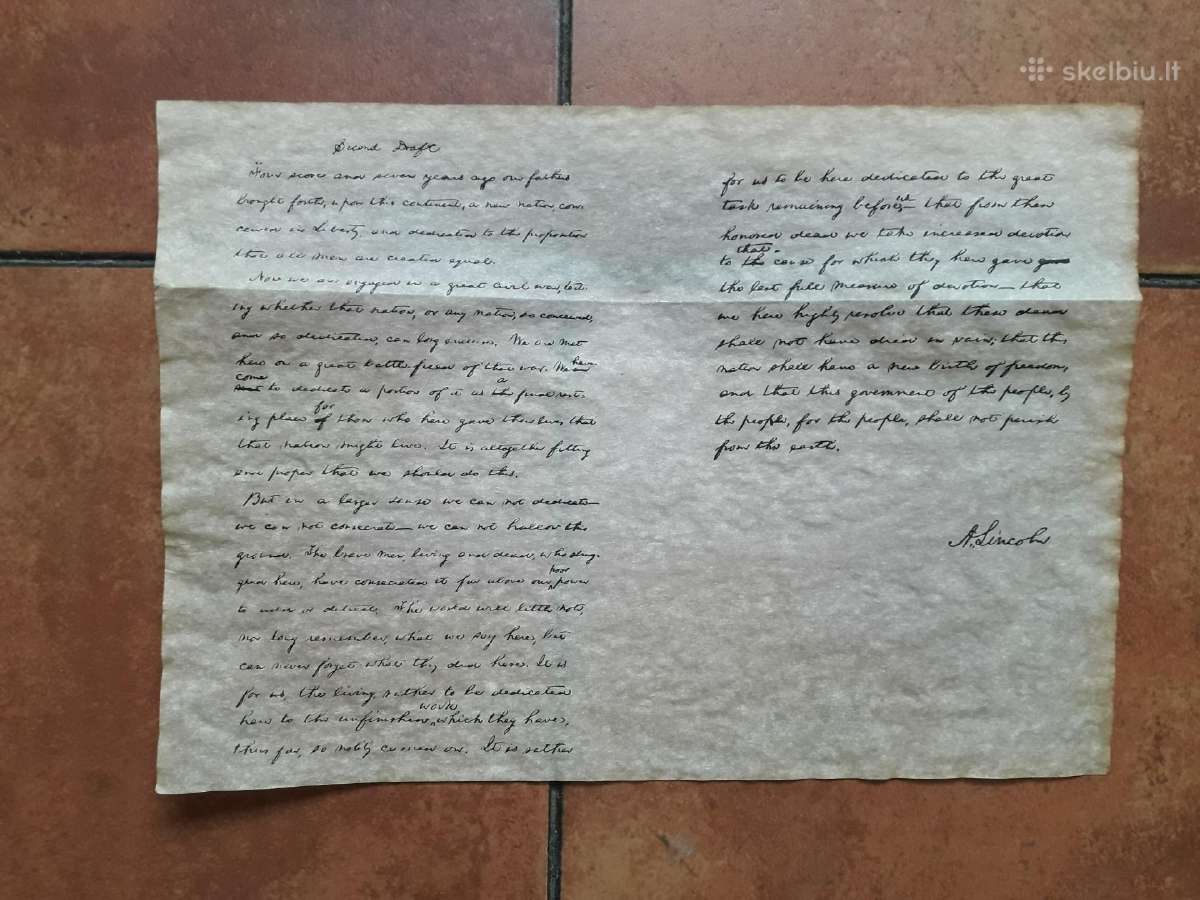 skelbiu.lt
Second Draft
Four score and seven years ago our fathers
brought forth, upon this continent, a new nation, con
ceived in Liberty, and dedicated to the proposition
that all men are created equal.
Now we are engaged in a great civil war, test
ing whether that nation, or any nation, so conceived,
and so dedicated, can long endure. We are met
here on a great battle field of that war. We have
come to dedicate a portion of it as a final rest
ing place for those who here gave their lives, that
that nation might live. It is altogether fitting
and proper that we should do this.
But in a larger sense we can not dedicate—
we can not consecrate— we can not hallow this
ground. The brave men, living and dead, who strug-
gled here, have consecrated it far above our poor power
to add or detract. The world will little note,
nor long remember, what we say here, but
can never forget what they did here. It is
for us, the living, rather to be dedicated
here to the unfinished work which they have,
thus far, so nobly carried on. It is rather
for us to be here dedicated to the great
task remaining before us— that from these
honored dead we take increased devotion
to that cause for which they here gave gave
the last full measure of devotion— that
we here highly resolve that these dead
shall not have died in vain; that this
nation shall have a new birth of freedom;
and that this government of the people, by
the people, for the people, shall not perish
from the earth.
A. Lincoln